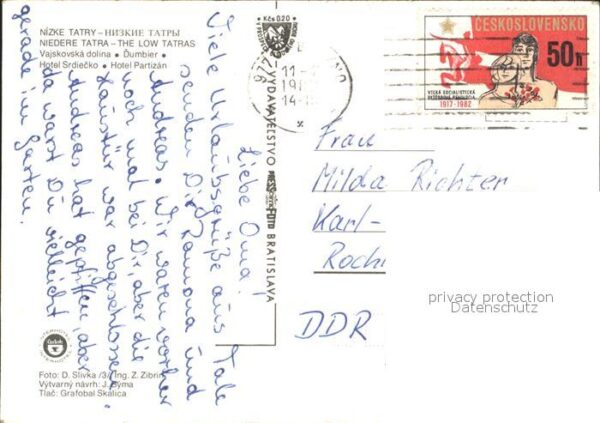 NÍZKE TATRY – НИЗКИЕ ТАТРЫ
NIEDERE TATRA – THE LOW TATRAS
Vajskovská dolina • Ďumbier •
Hotel Srdiečko • Hotel Partizán
Liebe Oma!
Viele Urlaubsgrüße aus Tale
senden Dir Ramona und
Andreas. Wir waren vorher
noch mal bei Dir, aber die
Haustür war abgeschlossen.
Andreas hat gepfiffen, aber
da warst Du vielleicht
gerade im Garten.
Foto: D. Slivka /3/, Ing. Z. Zibrín
Výtvarný návrh: J. Výma
Tlač: Grafobal Skalica
Kčs 0,20
VYDAVATEĽSTVO
PRESSFOTO
BRATISLAVA
11.
19
14-
ČESKOSLOVENSKO
50h
VEĽKÁ SOCIALISTICKÁ
OKTÓBROVÁ REVOLÚCIA
1917-1982
Frau
Milda Richter
Karl-
Rochl
DDR
privacy protection
Datenschutz